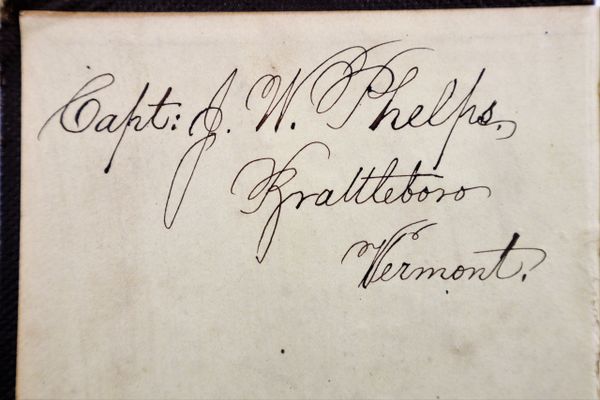 Capt: J. W. Phelps,
Brattleboro
Vermont.